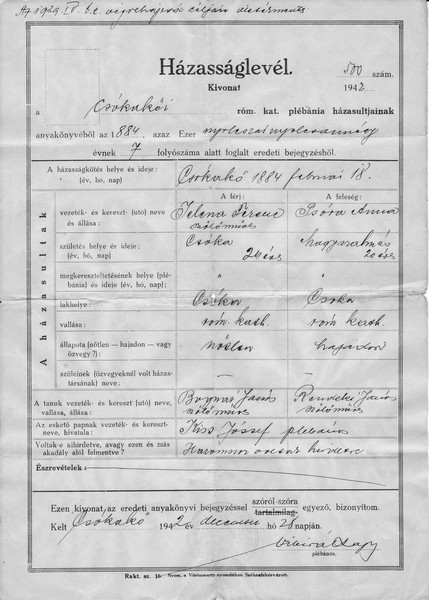 Az 1939 IV. t.c. végrehajtási céljára díjtalan
Házasságlevél.
Kivonat
500 szám.
1942
a Csókakői róm. kat. plébánia házasultjainak
anyakönyvéből az 1884, azaz Ezer nyolcszáznyolcvannégy
évnek 7 folyószáma alatt foglalt eredeti bejegyzésből.
A házasságkötés helye és ideje: (év, hó, nap)
Csókakő 1884 február 18.
A házasultak
A férj:
A feleség:
vezeték- és kereszt- (utó) neve és állása:
Ferenc szőlőműves
Anna
születés helye és ideje: (év, hó, nap)
Csóka 24 éves
Magyaralmás 20 éves
megkereszteltetésének helye (plébánia) és ideje (év, hó, nap):
"
"
lakhelye:
Csóka
Csóka
vallása:
róm. kath.
róm. kath.
állapota (nőtlen — hajadon — vagy özvegy?):
nőtlen
hajadon
szüleinek (özvegyeknél volt házastársának) neve:
A tanuk vezeték- és kereszt (utó) neve, vallása, állása:
Bognár János szőlőműves
Rendeki János szőlőműves
Az eskető papnak vezeték- és keresztneve, hivatala:
Kiss József plébános
Voltak-e kihirdetve, avagy ezen és más akadály alól felmentve?
Háromszor hirdetve
Észrevételek:
Ezen kivonat az eredeti anyakönyvi bejegyzéssel szóról-szóra tartalmilag egyező, bizonyítom.
Kelt Csókakő 1942 év december hó 28 napján.
plébános.
Rakt. sz. 16 Nyom. a Vörösmarty nyomdában Székesfehérvárott.